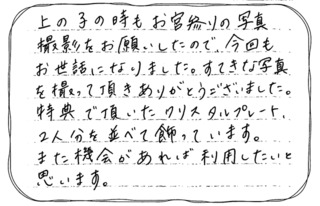 上の子の時もお宮参りの写真
撮影をお願いしたので、今回も
お世話になりました。すてきな写真
を撮って頂きありがとうございました。
特典で頂いたクリスタルプレート、
2人分を並べて飾っています。
また機会があれば利用したいと
思います。